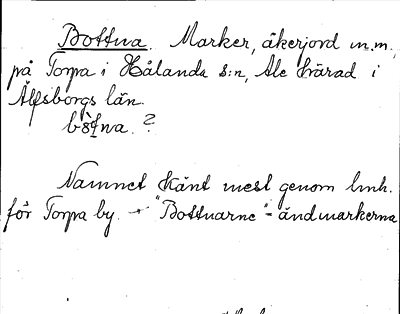 Bottna. Marker, åkerjord m.m.,
på Torpa i Hålanda s:n, Ale härad i
Älfsborgs län.
?
Namnet känt mest genom lmh.
för Torpa by. — "Bottnarne" - ändmarkerna